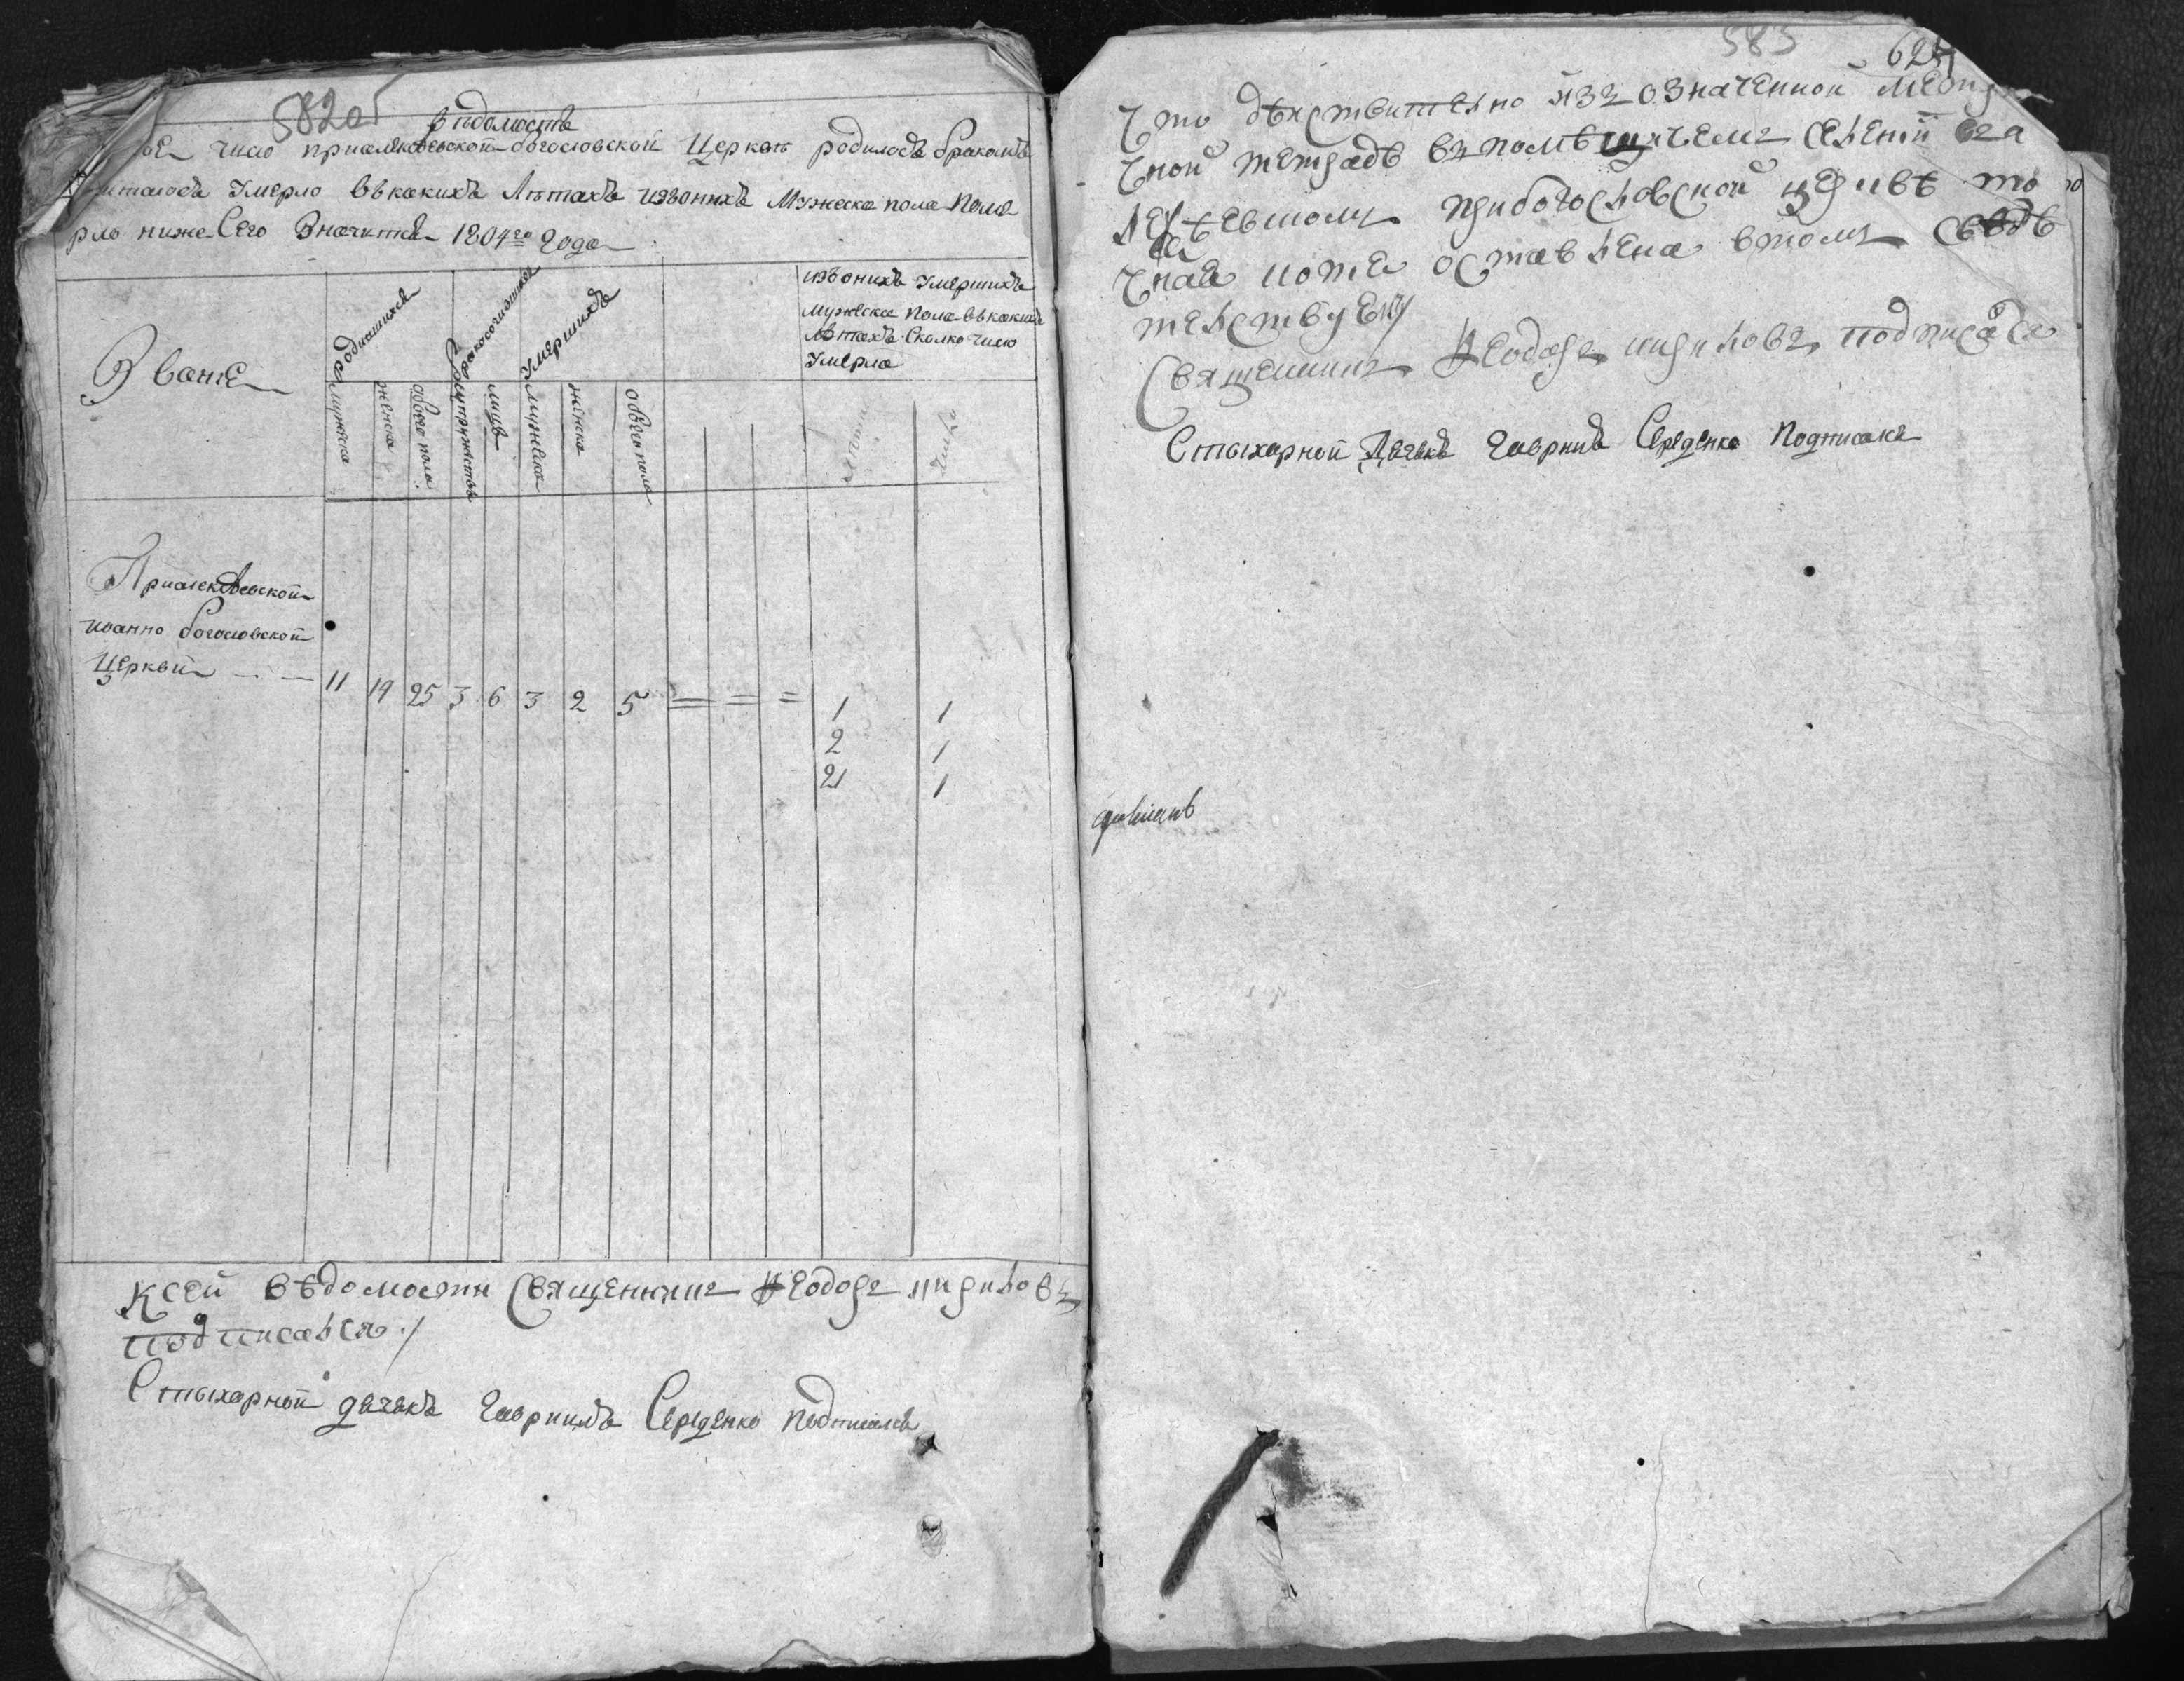 582 об
Вѣдомость
число приалексѣевской богословской Церкви родилось бракомъ
Умерло въ какихъ Лѣтахъ изъ онихъ Мужеска пола
ниже Сего Значится 1804го года
Званіе
родившихся
мужеска
женска
обоего пола
бракосочитавшихся
супружествъ
лицъ
умершихъ
мужеска
женска
обоего пола
изъ онихъ умершихъ
мужеска пола въ какихъ
лѣтахъ Сколко число
умерло
лѣта
число
Приалексѣевской
иоанно богословской
Церкви
11 19 25 3 6 3 2 5 = = = 1 1
2 1
21 1
К сей вѣдомости Священникъ Ѳеодоръ Кириловъ
подписался
Стыхарной дячекъ Гавриилъ Середенко подписался
583
624
Что дѣйствително изъ означенной
чной тетрадѣ въ
при богословской церквѣ то
чная копія оставлена в томъ свѣдѣ
телствуемъ
Священникъ Ѳеодоръ Кириловъ подписался
Стыхарной Дячекъ Гавриилъ Середенко Подписался